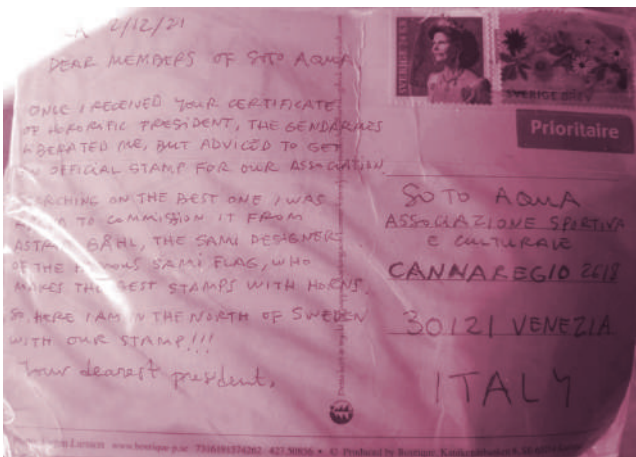 2/12/21
DEAR MEMBERS OF SOTO AQUA
ONCE I RECEIVED YOUR CERTIFICATE
OF HONORIFIC PRESIDENT, THE GENDARMES
LIBERATED ME, BUT ADVICED TO GET
AN OFFICIAL STAMP FOR OUR ASSOCIATION
SEARCHING ON THE BEST ONE I WAS
TO COMMISSION IT FROM
BÅHL, THE SAMI DESIGNER
OF THE FAMOUS SAMI FLAG, WHO
MAKES THE BEST STAMPS WITH HORNS.
SO, HERE I AM IN THE NORTH OF SWEDEN
WITH OUR STAMP!!!
Your dearest president.
SVERIGE
SVERIGE BREV
Prioritaire
SOTO AQUA
ASSOCIAZIONE SPORTIVA
E CULTURALE
CANNAREGIO 2618
30121 VENEZIA
ITALY
Larsson www.bostique-p.se 7316191374262 427.50856 • © Produced by Bostique.